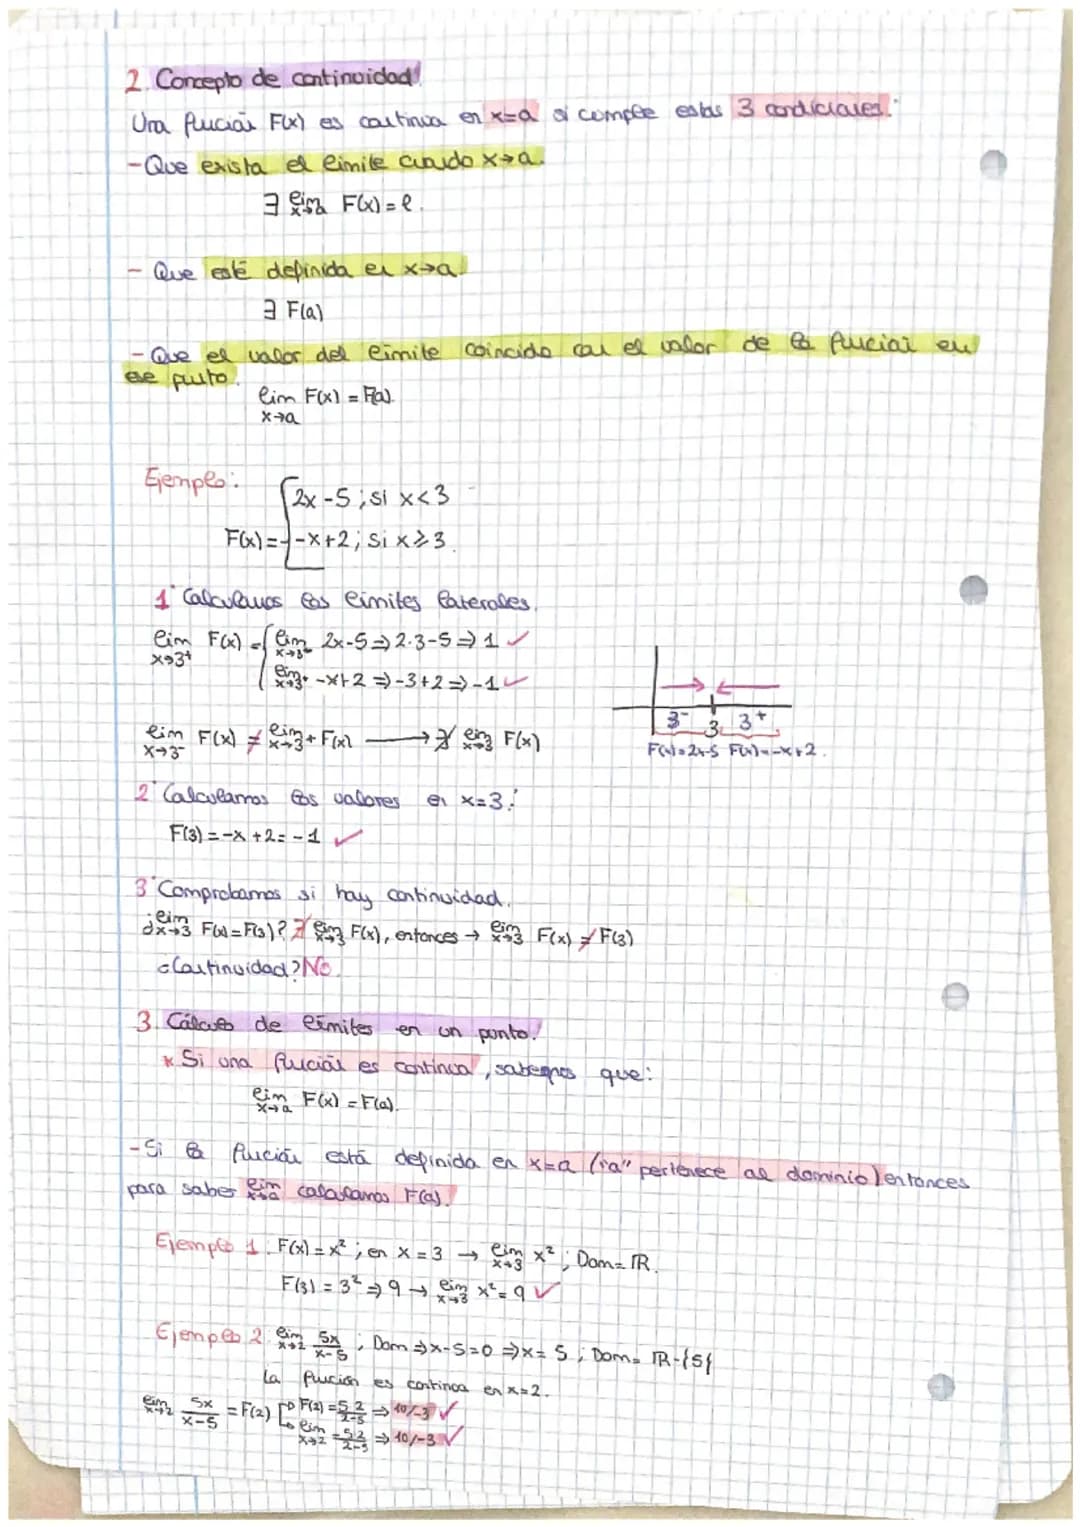 2. Concepto de continuidad
Una función F(x) es continua en x=a si cumple estas 3 condiciones:
- Que exista el límite cuando x→a.
∃ lim x→a F(x) = l.
- Que esté definida en x→a
∃ F(a)
- Que el valor del límite coincida con el valor de la función en
ese punto.
lim F(x) = F(a).
x→a
Ejemplo:
2x-5; si x<3
F(x)= -x+2; si x≥3
1º Calculamos los límites laterales.
lim x→3⁺ F(x) = lim x→3⁻ 2x-5 ⇒ 2·3-5 ⇒ 1 ✓
lim x→3⁺ -x+2 ⇒ -3+2 ⇒ -1 ✓
3⁻ 3 3⁺
F(x)=2x-5 F(x)=-x+2.
lim x→3⁻ F(x) ≠ lim x→3⁺ F(x) → ∄ lim x→3 F(x)
2º Calculamos los valores en x=3:
F(3) = -x+2 = -1 ✓
3º Comprobamos si hay continuidad.
¿lim x→3 F(x) = F(3)? ∄ lim x→3 F(x), entonces → lim x→3 F(x) ≠ F(3)
¿Continuidad? No.
3. Cálculo de límites en un punto.
* Si una función es continua, sabemos que:
lim x→a F(x) = F(a).
- Si la función está definida en x=a ("a" pertenece al dominio) entonces
para saber lim x→a calculamos F(a).
Ejemplo 1: F(x) = x²; en x = 3 → lim x→3 x²; Dom= ℝ.
F(3) = 3² ⇒ 9 → lim x→3 x² = 9 ✓
Ejemplo 2: lim x→2 5x/x-5; Dom ⇒ x-5=0 ⇒ x= 5; Dom= ℝ-{5}
La función es continua en x=2.
lim x→2 5x/x-5 = F(2) F(2) = 5·2/2-5 ⇒ 10/-3 ✓
lim x→2 = 5·2/2-5 ⇒ 10/-3 ✓